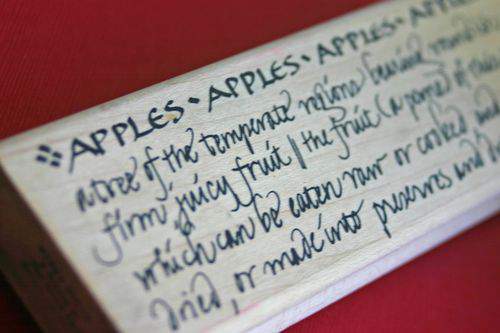 APPLES • APPLES • APPLES • APPLE
a tree of the temperate regions bearing round
firm juicy fruit | the fruit (a pome) of this
which can be eaten raw or cooked and
dried, or made into preserves and